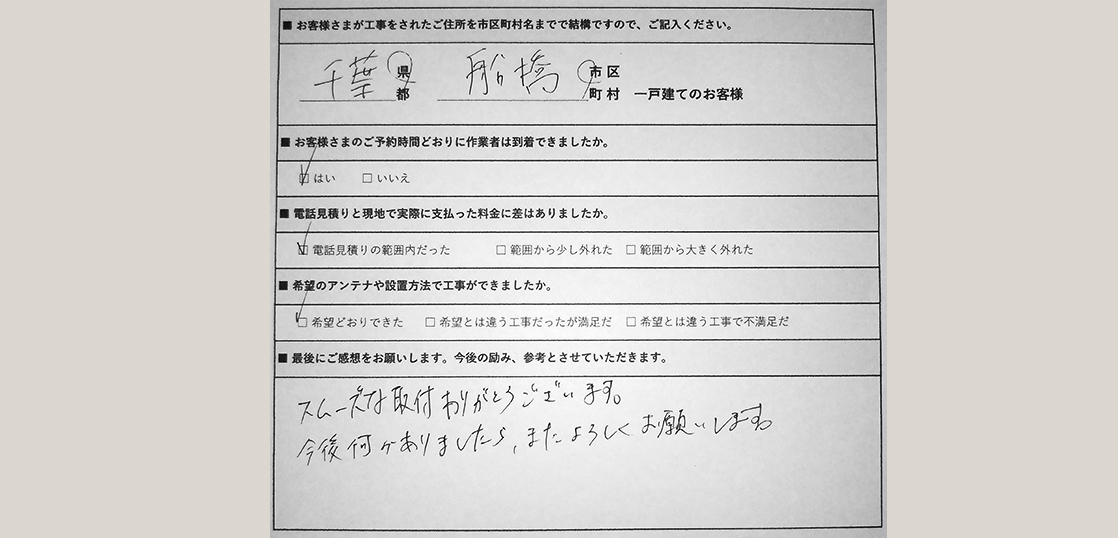 ■ お客様さまが工事をされたご住所を市区町村名までで結構ですので、ご記入ください。
千葉 県 船橋 市 区
都 町 村 一戸建てのお客様
■ お客様さまのご予約時間どおりに作業者は到着できましたか。
☑ はい □ いいえ
■ 電話見積りと現地で実際に支払った料金に差はありましたか。
☑ 電話見積りの範囲内だった □ 範囲から少し外れた □ 範囲から大きく外れた
■ 希望のアンテナや設置方法で工事ができましたか。
☑ 希望どおりできた □ 希望とは違う工事だったが満足だ □ 希望とは違う工事で不満足だ
■ 最後にご感想をお願いします。今後の励み、参考とさせていただきます。
スムーズな取付ありがとうございます。
今後何かありましたら、またよろしくお願いします。